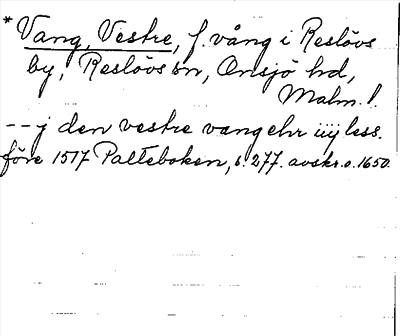 * Vang, Vestre, f. vång i Reslövs
by, Reslövs sn, Onsjö hd,
Malm. l.
-- j den vestre vang ehr iiij less.
före 1517 Palteboken, s. 277. avskr. o. 1650.